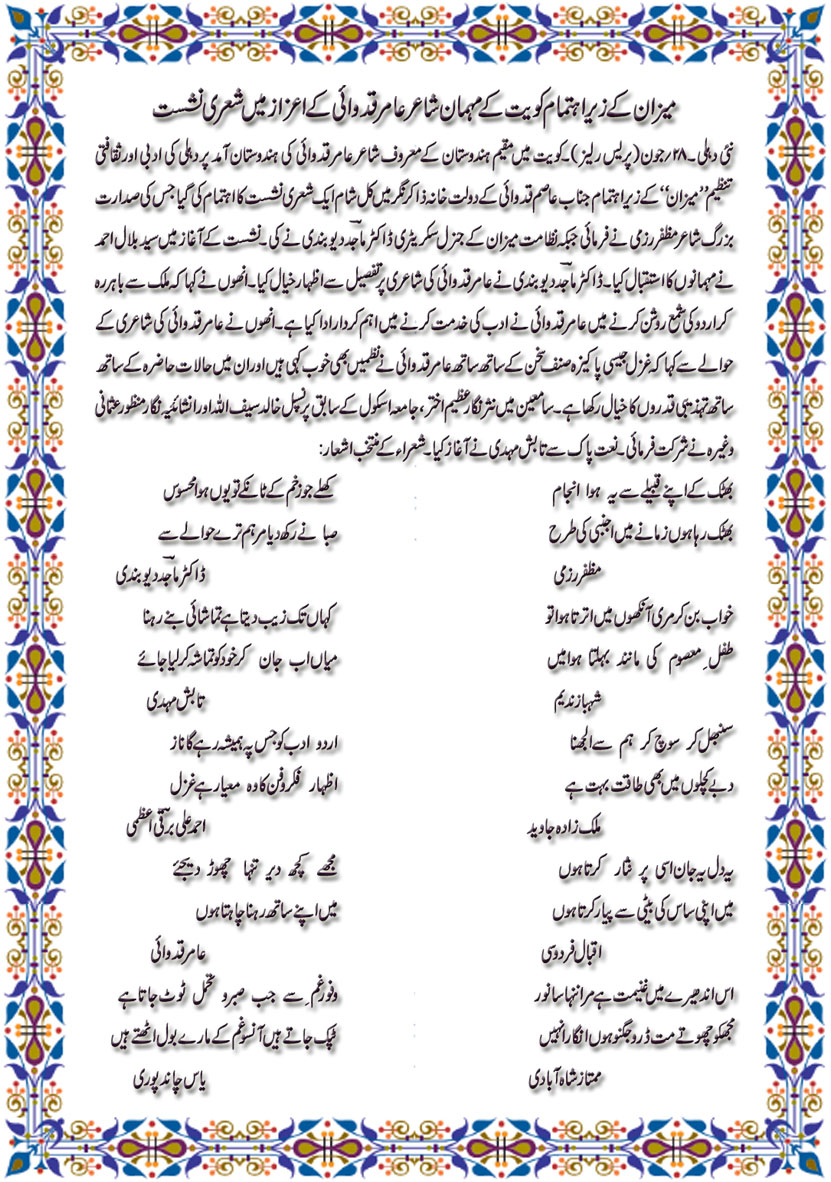 میزان کے زیر اہتمام کویت کے مہمان شاعر عامر قدوائی کے اعزاز میں شعری نشست
نئی دہلی ۔۲۸؍جون(پریس ریلیز)۔کویت میں مقیم ہندوستان کے معروف شاعر عامر قدوائی کی ہندوستان آمد پر دہلی کی ادبی اور ثقافتی
تنظیم ’’میزان‘‘ کے زیر اہتمام جناب عاصم قدوائی کے دولت خانہ ذاکر نگر میں کل شام ایک شعری نشست کا اہتمام کی گیا جس کی صدارت
بزرگ شاعر مظفر رزمی نے فرمائی جبکہ نظامت میزان کے جنرل سکریٹری ڈاکٹر ماجدؔ دیوبندی نے کی ۔ نشست کے آغاز میں سید بلال احمد
نے مہمانوں کا استقبال کیا۔ ڈاکٹر ماجدؔ دیوبندی نے عامر قدوائی کی شاعری پر تفصیل سے اظہار خیال کیا۔ انھوں نے کہا کہ ملک سے باہر رہ
کر اردو کی شمع روشن کرنے میں عامر قدوائی نے ادب کی خدمت کرنے میں اہم کردار ادا کیا ہے۔ انھوں نے عامر قدوائی کی شاعری کے
حوالے سے کہا کہ غزل جیسی پاکیزہ صنف سخن کے ساتھ ساتھ عامر قدوائی نے نظمیں بھی خوب کہی ہیں اور ان میں حالات حاضرہ کے ساتھ
ساتھ تہذیبی قدروں کا خیال رکھا ہے۔ سامعین میں نثر نگار عظیم اختر، جامعہ اسکول کے سابق پرنسپل خالد سیف اللہ اور انشائیہ نگار منظور عثمانی
وغیرہ نے شرکت فرمائی ۔ نعت پاک سے تابش مہدی نے آغاز کیا۔ شعراء کے منتخب اشعار:
بھٹک کے اپنے قبیلے سے یہ ہوا انجام
بھٹک رہا ہوں زمانے میں اجنبی کی طرح
مظفر رزمی
کھلے جو زخم کے ٹانکے تو یوں ہوا محسوس
صبا نے رکھ دیا مرہم ترے حوالے سے
ڈاکٹر ماجدؔ دیوبندی
خواب بن کر مری آنکھوں میں اترتا ہوا تو
طفلِ معصوم کی مانند بہلتا ہوا میں
شہباز ندیم
کہاں تک زیب دیتا ہے تماشائی بنے رہنا
میاں اب جان کر خود کو تماشہ کر لیا جائے
تابش مہدی
سنبھل کر سوچ کر ہم سے الجھنا
دبے کچلوں میں بھی طاقت بہت ہے
ملک زادہ جاوید
اردو ادب کو جس پہ ہمیشہ رہے گا ناز
اظہار فکر وفن کا وہ معیار ہے غزل
احمد علی برقیؔ اعظمی
یہ دل یہ جان اسی پر نثار کرتا ہوں
میں اپنی ساس کی بیٹی سے پیار کرتا ہوں
اقبال فردوسی
مجھے کچھ دیر تنہا چھوڑ دیجئے
میں اپنے ساتھ رہنا چاہتا ہوں
عامر قدوائی
اس اندھیرے میں غنیمت ہے مرا ننھا سا نور
مجھکو چھوتے مت ڈرو جگنو ہوں انگارا نہیں
ممتاز شاہ آبادی
وفورِ غم سے جب صبر و تحمل ٹوٹ جاتا ہے
ٹپک جاتے ہیں آنسو غم کے مارے بول اٹھتے ہیں
یاس چاند پوری